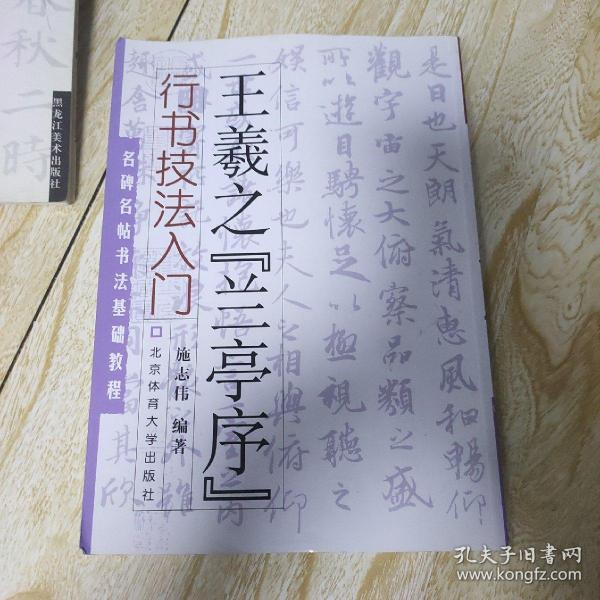 是日也天朗氣清惠風和暢仰
觀宇宙之大俯察品類之盛
所以遊目騁懷足以極視聽之
娛信可樂也夫人之相與俯仰
王羲之『兰亭序』
行书技法入门
施志伟 编著
北京体育大学出版社
名碑名帖书法基础教程
春秋二時
黑龙江美术出版社
孔夫子旧书网
www.kongfz.com